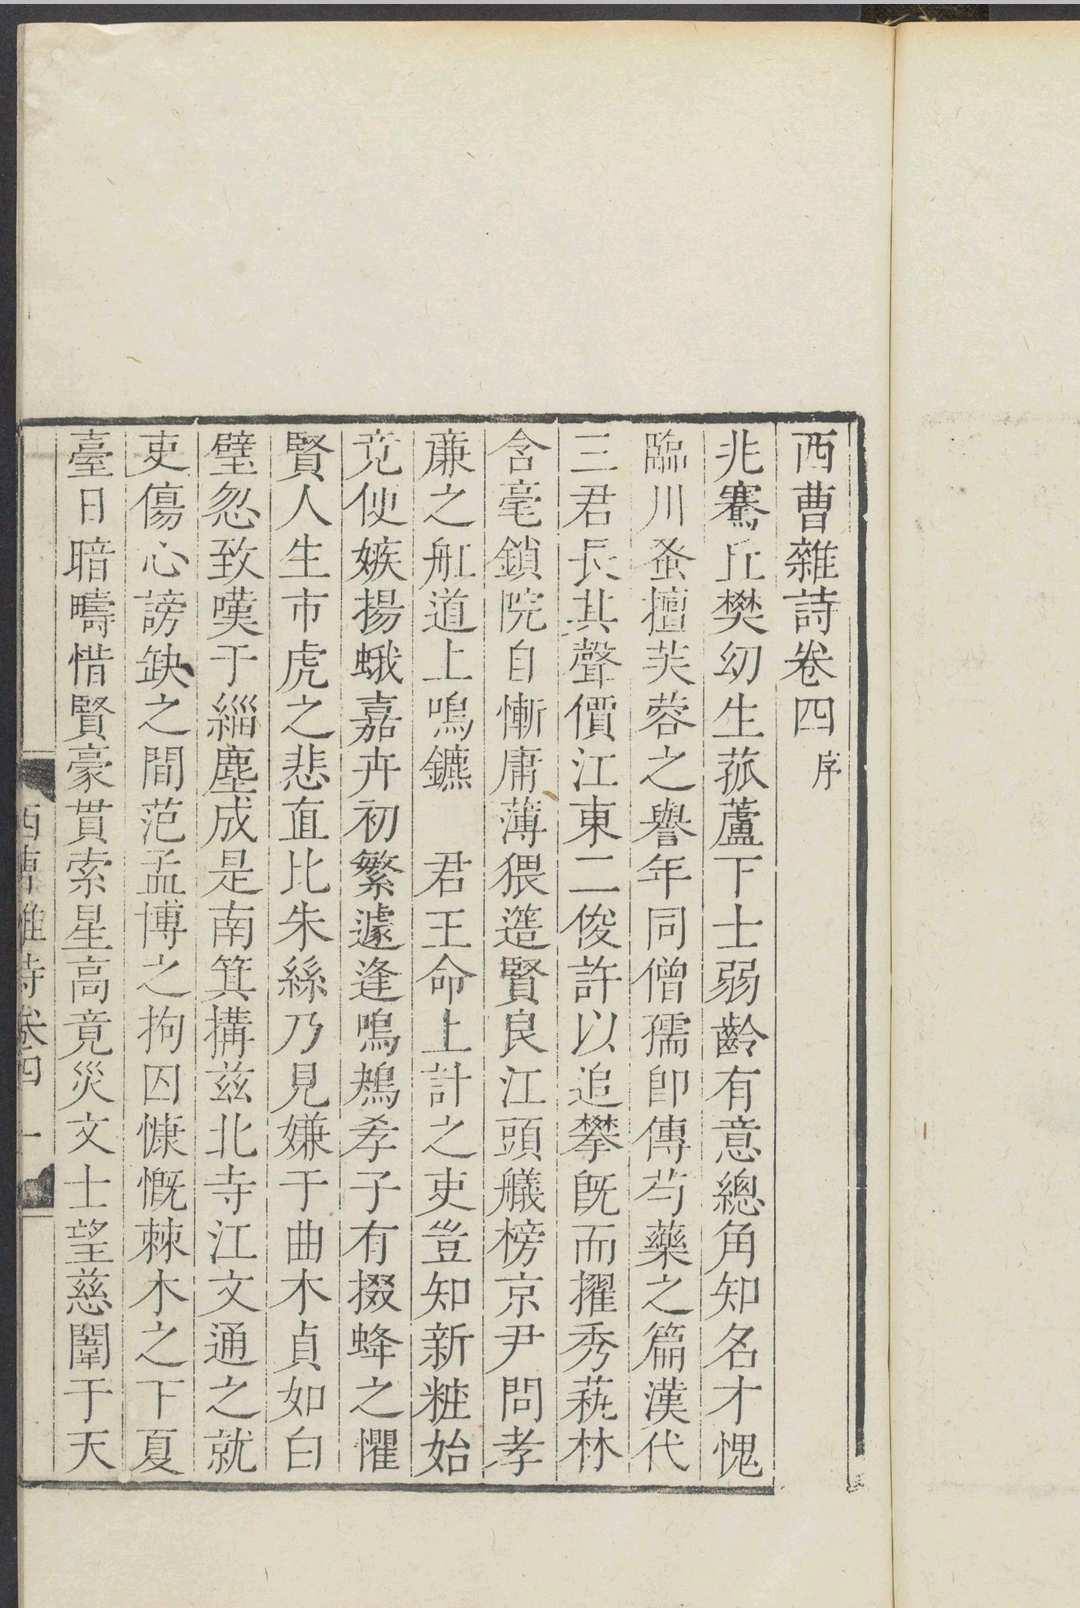 西曹雜詩卷四 序
兆騫丘樊幼生菰蘆下士弱齡有意總角知名才愧
臨川蚤擅芙蓉之譽年同僧孺卽傳芍藥之篇漢代
三君長其聲價江東二俊許以追攀旣而擢秀蓺林
含毫鎖院自慚庸薄猥簉賢良江頭艤榜京尹問孝
亷之舡道上鳴鑣 君王命上計之吏豈知新粧始
竞使嫉揚蛾嘉卉初繁遽逢鳴鴂孝子有掇蜂之懼
賢人生市虎之悲直比朱絲乃見嫌于曲木貞如白
璧忽致嘆于緇塵成是南箕搆兹北寺江文通之就
吏傷心謗缺之間范孟博之拘囚慷慨棘木之下夏
臺日暗疇惜賢豪貫索星高竟災文士望慈闈于天
西曹雜詩卷四 一